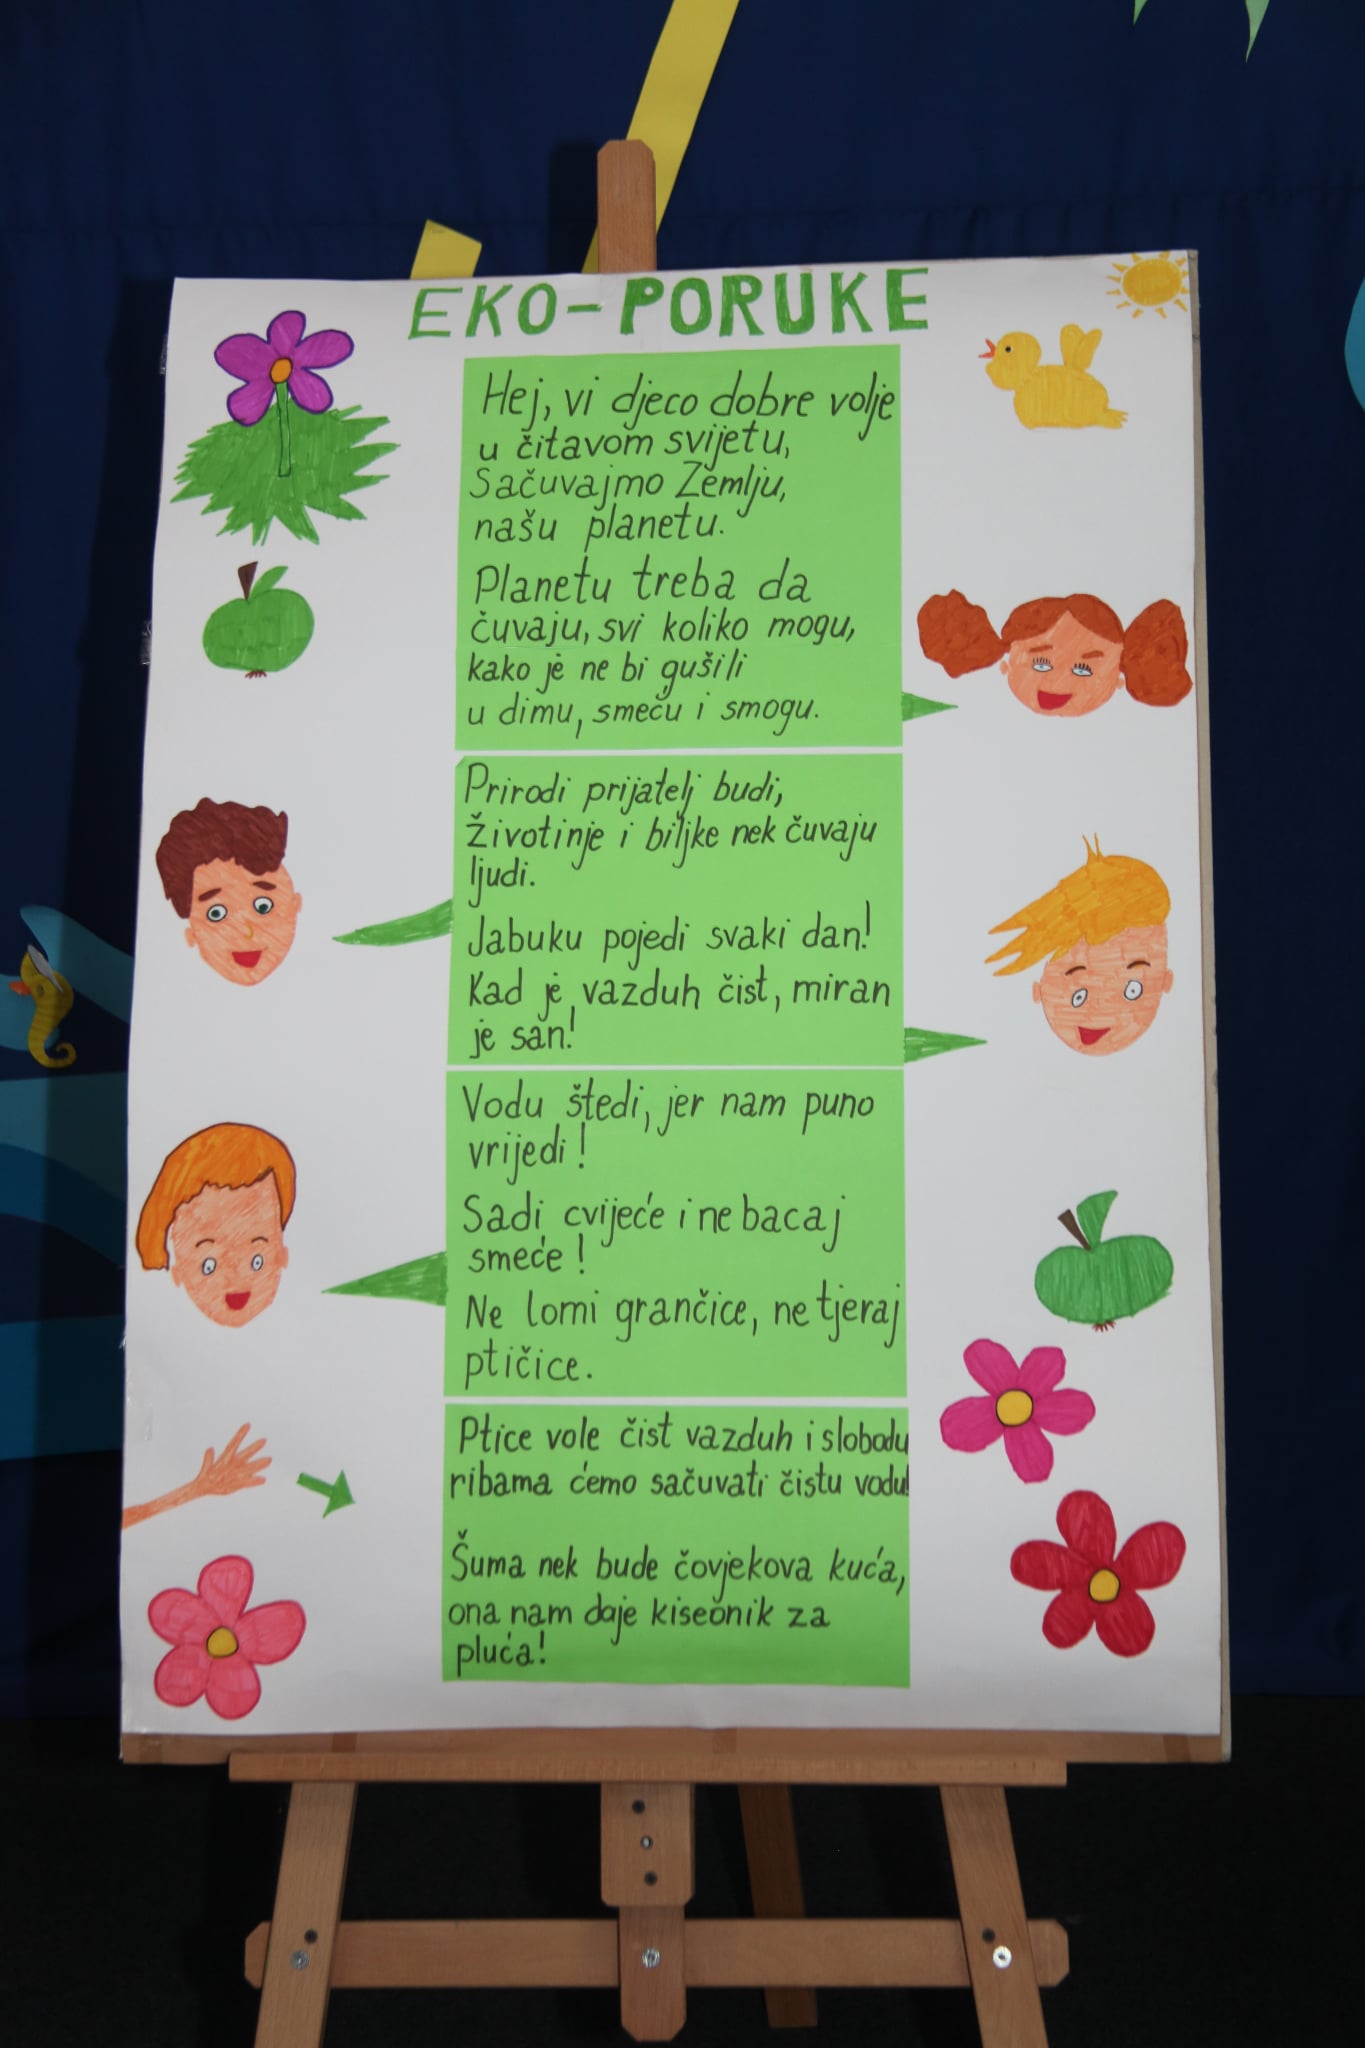 EKO-PORUKE
Hej, vi djeco dobre volje
u čitavom svijetu,
Sačuvajmo Zemlju,
našu planetu.
Planetu treba da
čuvaju, svi koliko mogu,
kako je ne bi gušili
u dimu, smeću i smogu.
Prirodi prijatelj budi,
životinje i biljke nek čuvaju
ljudi.
Jabuku pojedi svaki dan!
Kad je vazduh čist, miran
je san!
Vodu štedi, jer nam puno
vrijedi!
Sadi cvijeće i ne bacaj
smeće!
Ne lomi grančice, ne tjeraj
ptičice.
Ptice vole čist vazduh i slobodu
ribama ćemo sačuvati čistu vodu!
Šuma nek bude čovjekova kuća,
ona nam daje kiseonik za
pluća!